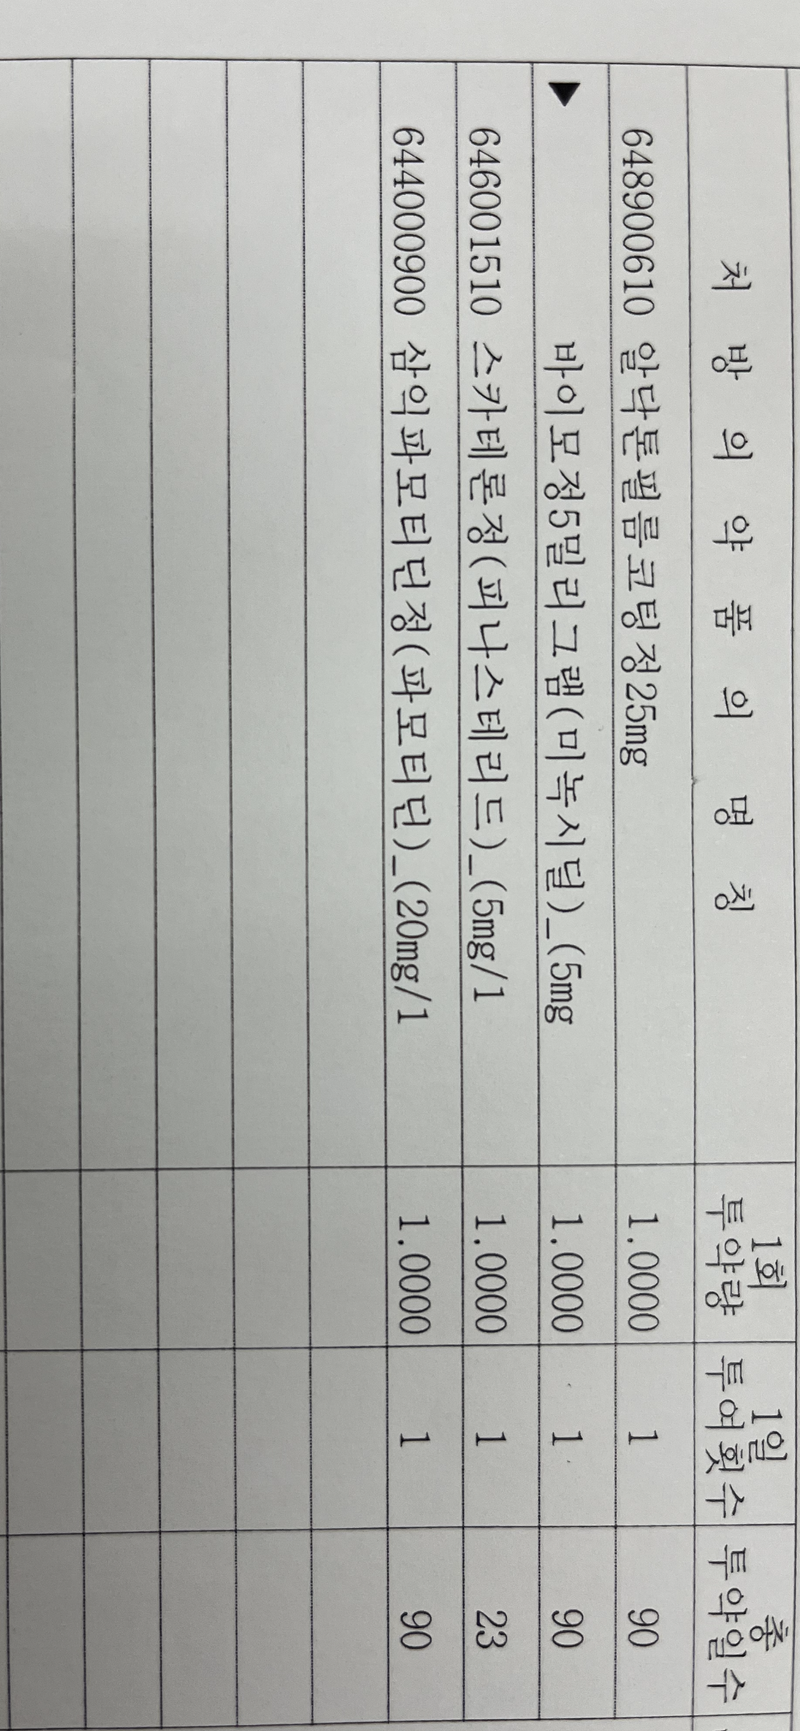 처 방 의 약 품 의 명 칭 1회 투약량 1일 투여횟수 총 투약일수
648900610 알닥톤필름코팅정25mg 1.0000 1 90
▼ 바이모정5밀리그램(미녹시딜)_(5mg 1.0000 1 90
646001510 스카테론정(피나스테리드)_(5mg/1 1.0000 1 23
644000900 삼익파모티딘정(파모티딘)_(20mg/1 1.0000 1 90